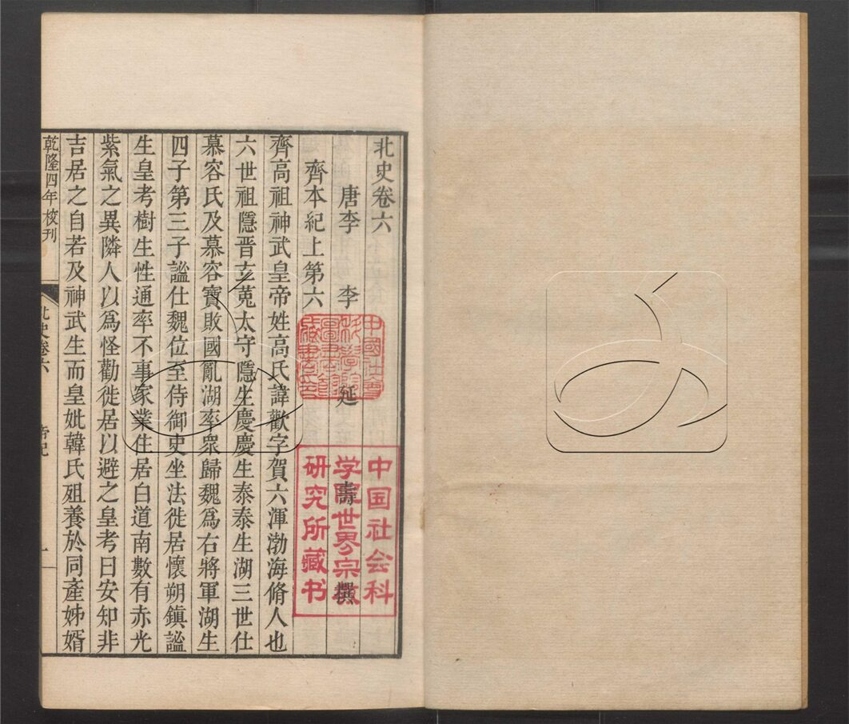 北史卷六
唐李 李 延 壽 撰
齊本紀上第六
齊高祖神武皇帝姓高氏諱歡字賀六渾渤海脩人也
六世祖隱晋玄菟太守隱生慶慶生泰泰生湖三世仕
慕容氏及慕容寶敗國亂湖率衆歸魏爲右將軍湖生
四子第三子謐仕魏位至侍御史坐法徙居懷朔鎮謐
生皇考樹生性通率不事家業住居白道南數有赤光
紫氣之異隣人以爲怪勸徙居以避之皇考曰安知非
吉居之自若及神武生而皇妣韓氏殂養於同產姊婿
乾隆四年校刊
北史卷六
一
中国社会科
学院世界宗教
研究所藏书